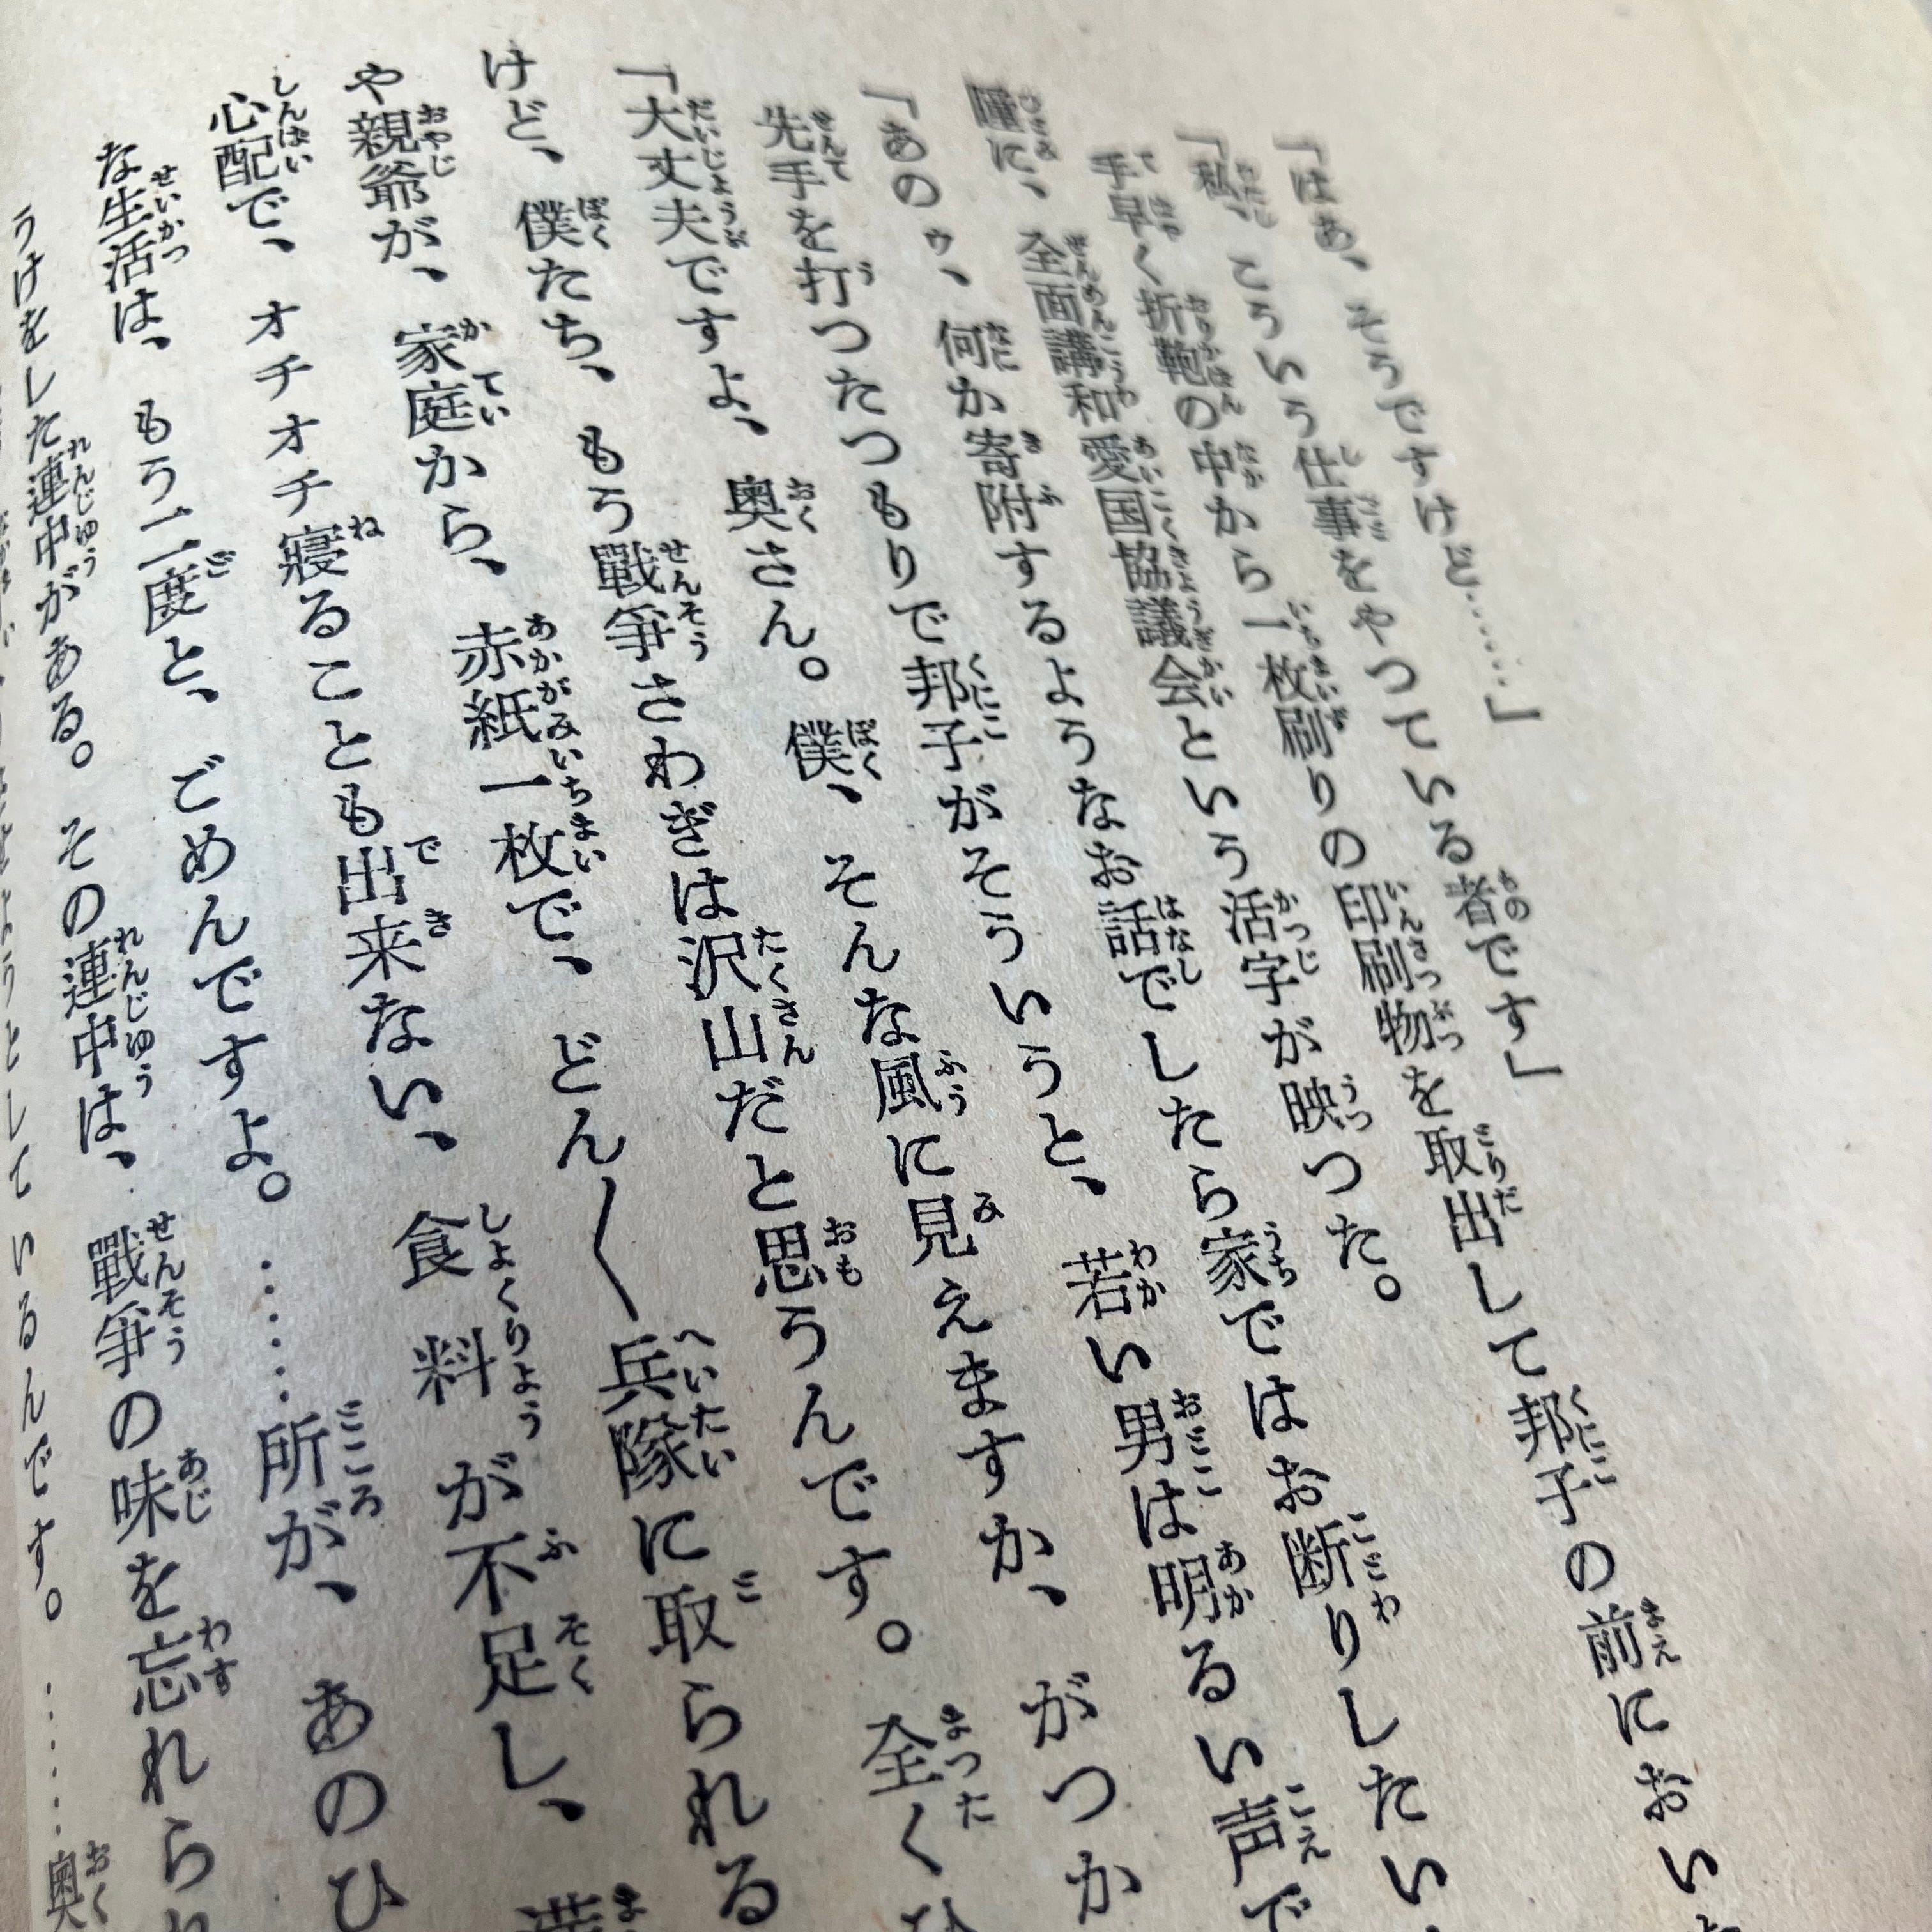 「はあ、そうですけど……」
「私、こういう仕事をやつている者です」
手早く折鞄の中から一枚刷りの印刷物を取出して邦子の前においた
瞳に、全面講和愛国協議会という活字が映つた。
「あのゥ、何か寄附するようなお話でしたら家ではお断りしたい
先手を打つたつもりで邦子がそういうと、若い男は明るい声で
「大丈夫ですよ、奥さん。僕、そんな風に見えますか、がつか
けど、僕たち、もう戰爭さわぎは沢山だと思うんです。全くひ
や親爺が、家庭から、赤紙一枚で、どん〱兵隊に取られる
心配で、オチオチ寢ることも出来ない、食料が不足し、
な生活は、もう二度と、ごめんですよ。……所が、あのひ
うけをした連中がある。その連中は、戰爭の味を忘れられ
ようとしているんです。……奥